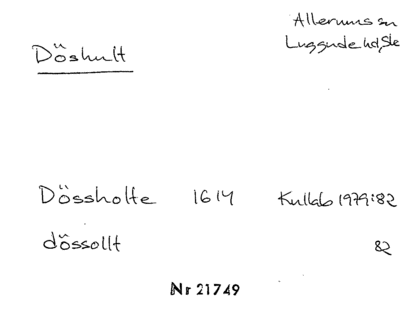 Allerums sn
Döshult
Luggude hd, Ske
Dössholte 1614 Kullab 1979:82
dössollt 82
Nr 21749